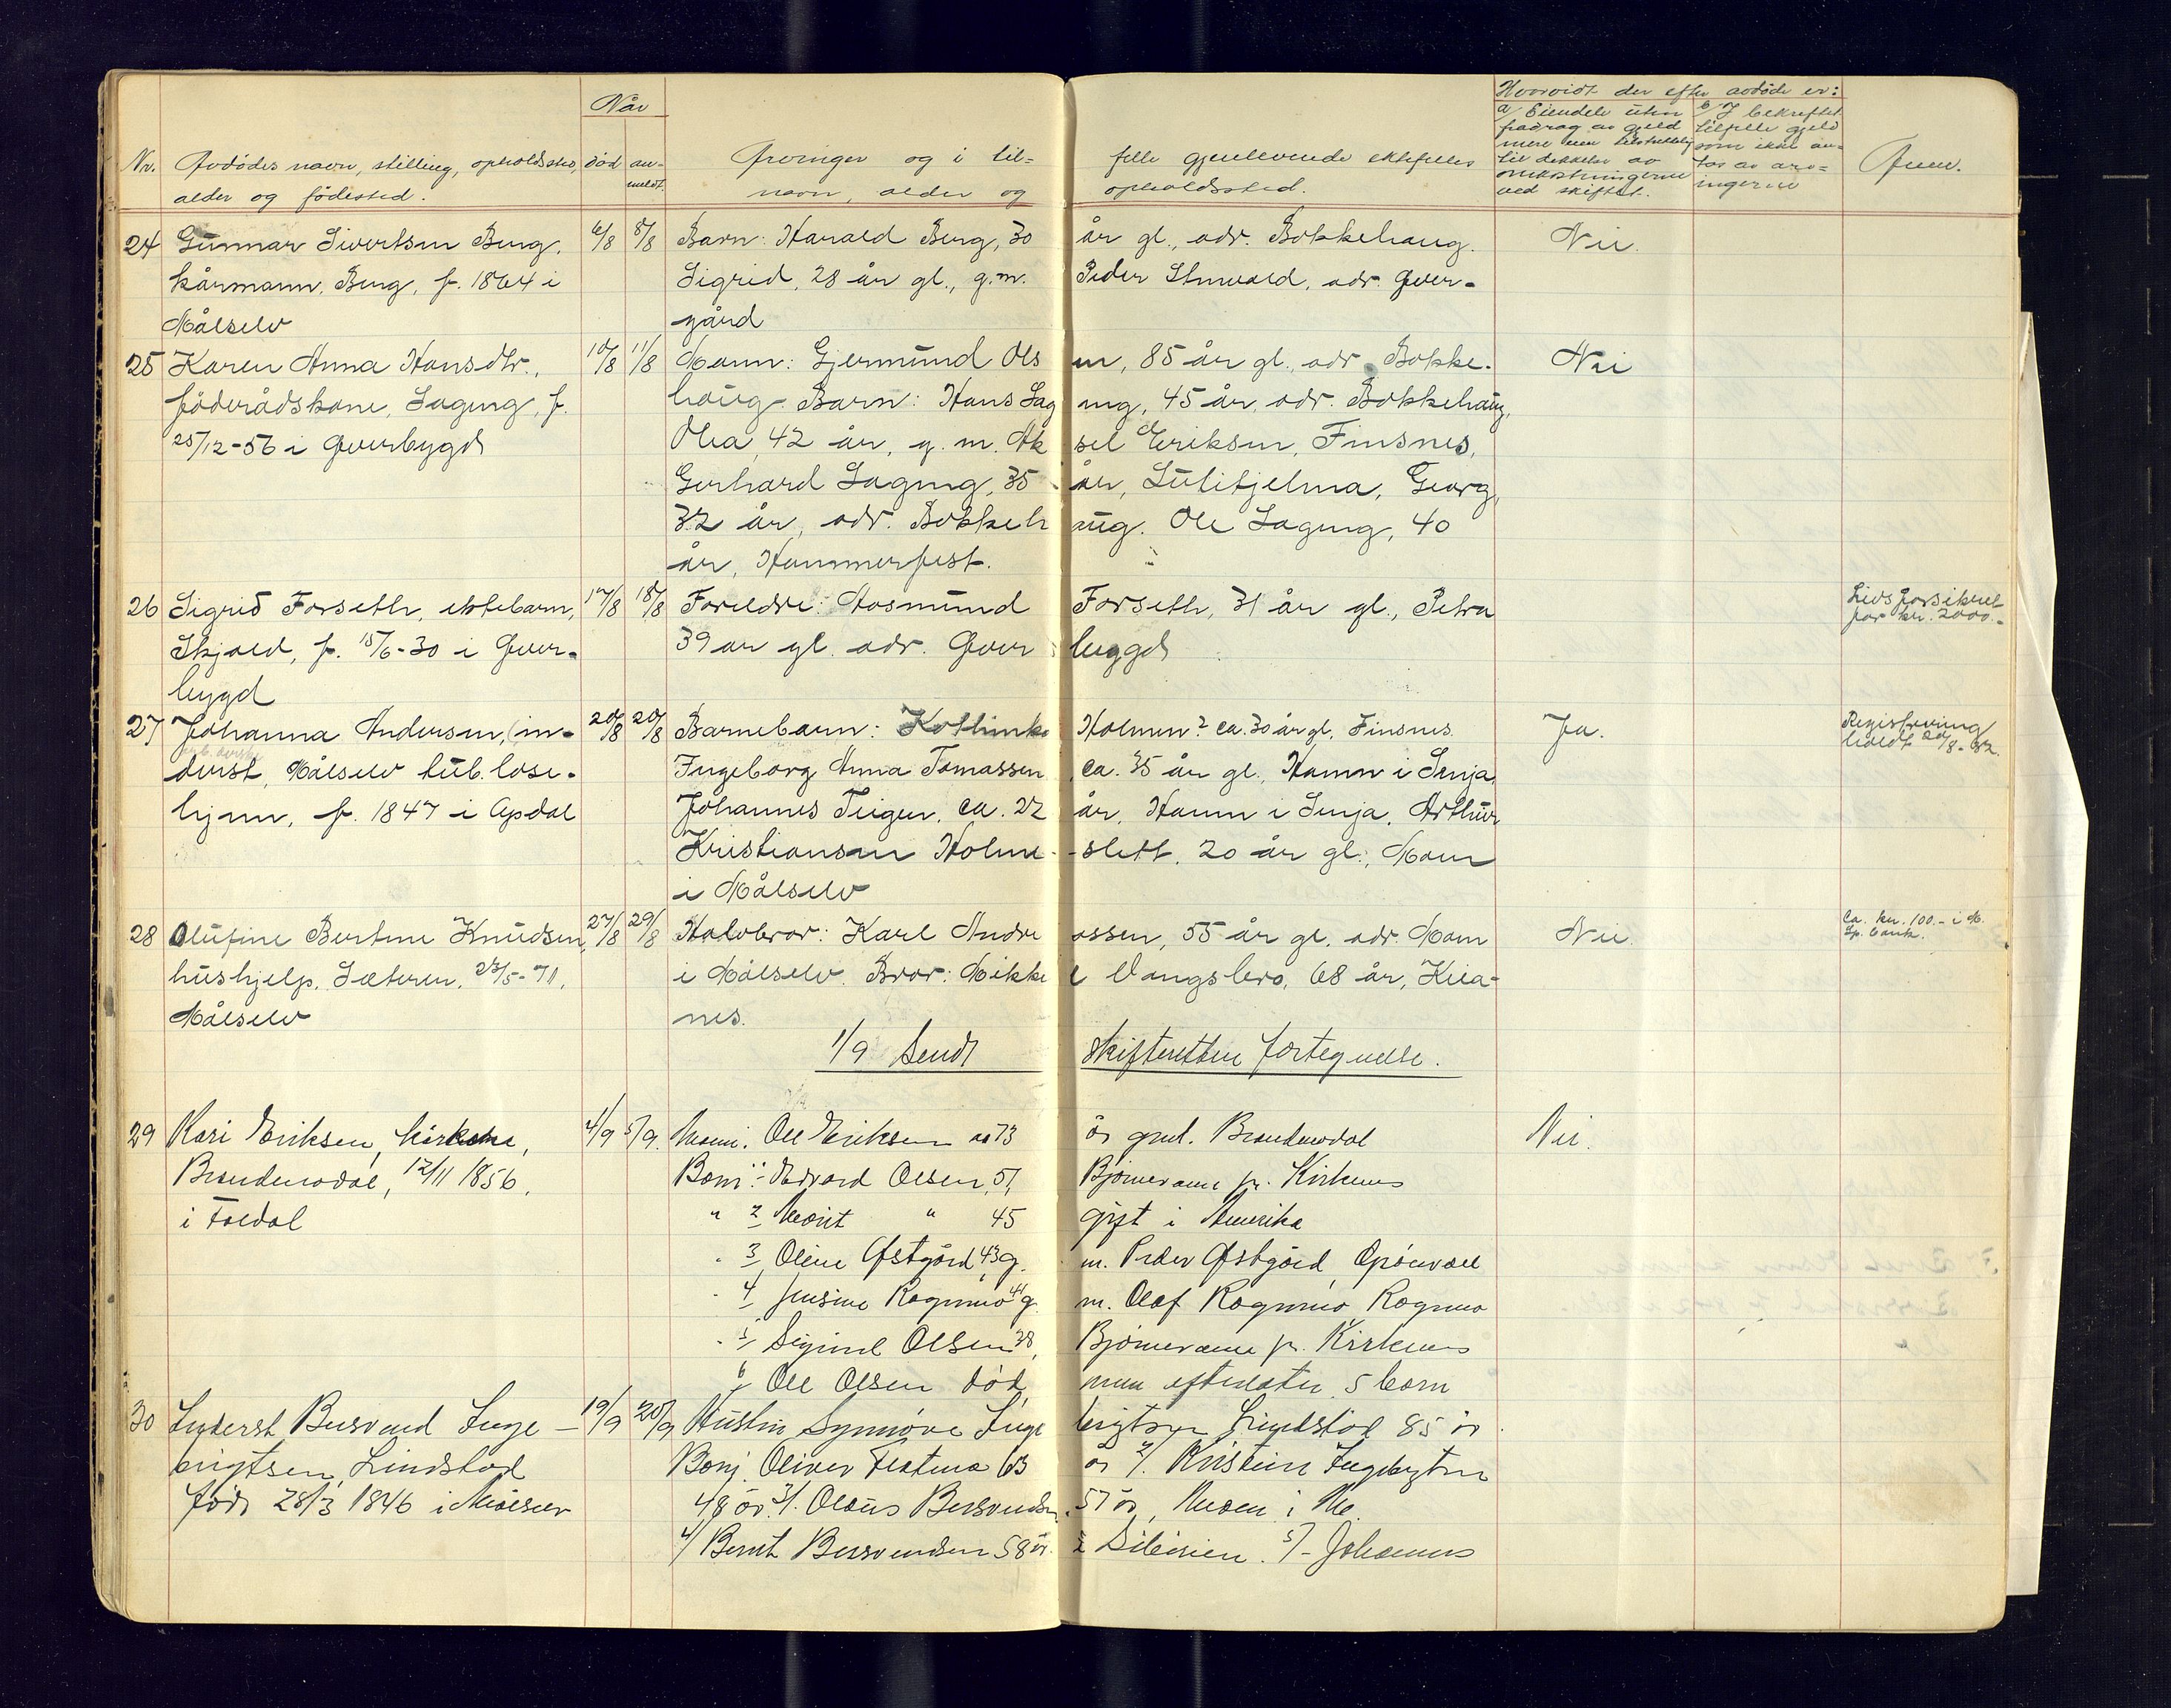 Når
Hvorvidt der efter avdøde er:
Nr. Avdødes navn, stilling, opholdssted, alder og fødested.
død
anmeldt.
Arvinger og i tilfelle gjenlevende ektefelles navn, alder og opholdssted.
a/ Eiendele uten fradrag av gjeld mere enn tilstrekkelig til dekkelse av omkostningerne ved skiftet.
b/ I bekreftet tilfelle gjeld som ikke antas av arvingerne
Anm.
24 Gunnar Sivertsen Berg, 6/8 8/8 Barn: Harald Berg, 30 år gl., adr. Bakkehaug. Nei.
kårmann, Berg, f. 1864 i Sigrid, 28 år gl., g.m. Peder Strnvold, adr. Øver-
Målselv gård
25 Karen Anna Hansdtr., 10/8 11/8 Mann: Gjermund Olsen, 85 år gl., adr. Bakke- Nei
föderådskone, Lageng, f. haug. Barn: Hans Lageng, 45 år, adr. Bakkehaug,
25/12-56 i Øverbygd Olea, 42 år, g. m. Aksel Eriksen, Finsnes,
Gerhard Lageng, 35 år, Sulitjelma, Georg,
32 år, adr. Bakkehaug. Ole Lageng, 40
år, Hammerfest.
26 Sigrid Forseth, ektebarn, 17/8 18/8 Foreldre: Aasmund Forseth, 31 år gl., Petra Livsforsikret
Skjold, f. 15/6-30 i Øver- 39 år gl. adr. Øverbygd for kr. 2000.-
bygd
27 Johanna Andersen, (in- 20/8 20/8 Barnebarn: Kathinka Holmen? ca. 30 år gl., Finsnes. Ja. Registrering
derst, Målselv tub. lose- Ingeborg Anna Tomassen, ca. 35 år gl., Hamn i Senja, holdt 20/8-32.
hjem, f. 1847 i Opdal Johannes Teigen, ca. 22 år, Hamn i Senja, Arthur
Kristiansen Holme- -slett, 20 år gl., Moen
i Målselv
28 Olufine Bertine Knudsen, 27/8 29/8 Halvbror: Karl Andreassen, 55 år gl. adr. Moen Nei. Ca. kr. 100.- i M.
hushjelp, Sæteren, 23/5-71, i Målselv. Bror: Mikkel Vangsbro, 68 år, Kila- Sp. bank.
Målselv nes.
1/9 Sendt skifteretten fortegnelse.
29 Kari Eriksen, kårkone, 4/9 5/9. Mann: Ole Eriksen 73 år gml. Brandmodal Nei.
Brandmodal, 12/11 1856, Barn: Edvard Olsen, 51, Bjørnevann pr. Kirkenes
i Foldal " 2 Marit " 45 gift i Amerika
" 3 Oline Østgård 43 g. m. Peder Østgård,
" 4 Jensine Rognmo 41 g. m. Olaf Rognmo Rognmo
" 5 Sigurd Olsen 38, Bjørnevann pr. Kirkenes
6 Ole Olsen død, men efterlater 5 barn
30 Inderst Bersvend Inge- 19/9 20/9 Hustru Synnøve Ingebrigtsen Lindstad 85 år
brigtsen, Lindstad Barn: Oliver 63 år 2/. Kristein Ingebrigtsen
født 28/3 1846 i Målselv 48 år. 3/. Olaus Bersvendsen. 57 år, Moen i M.
4/ Bernt Bersvendsen 58 år. i Sibirien. 5/- Johannes